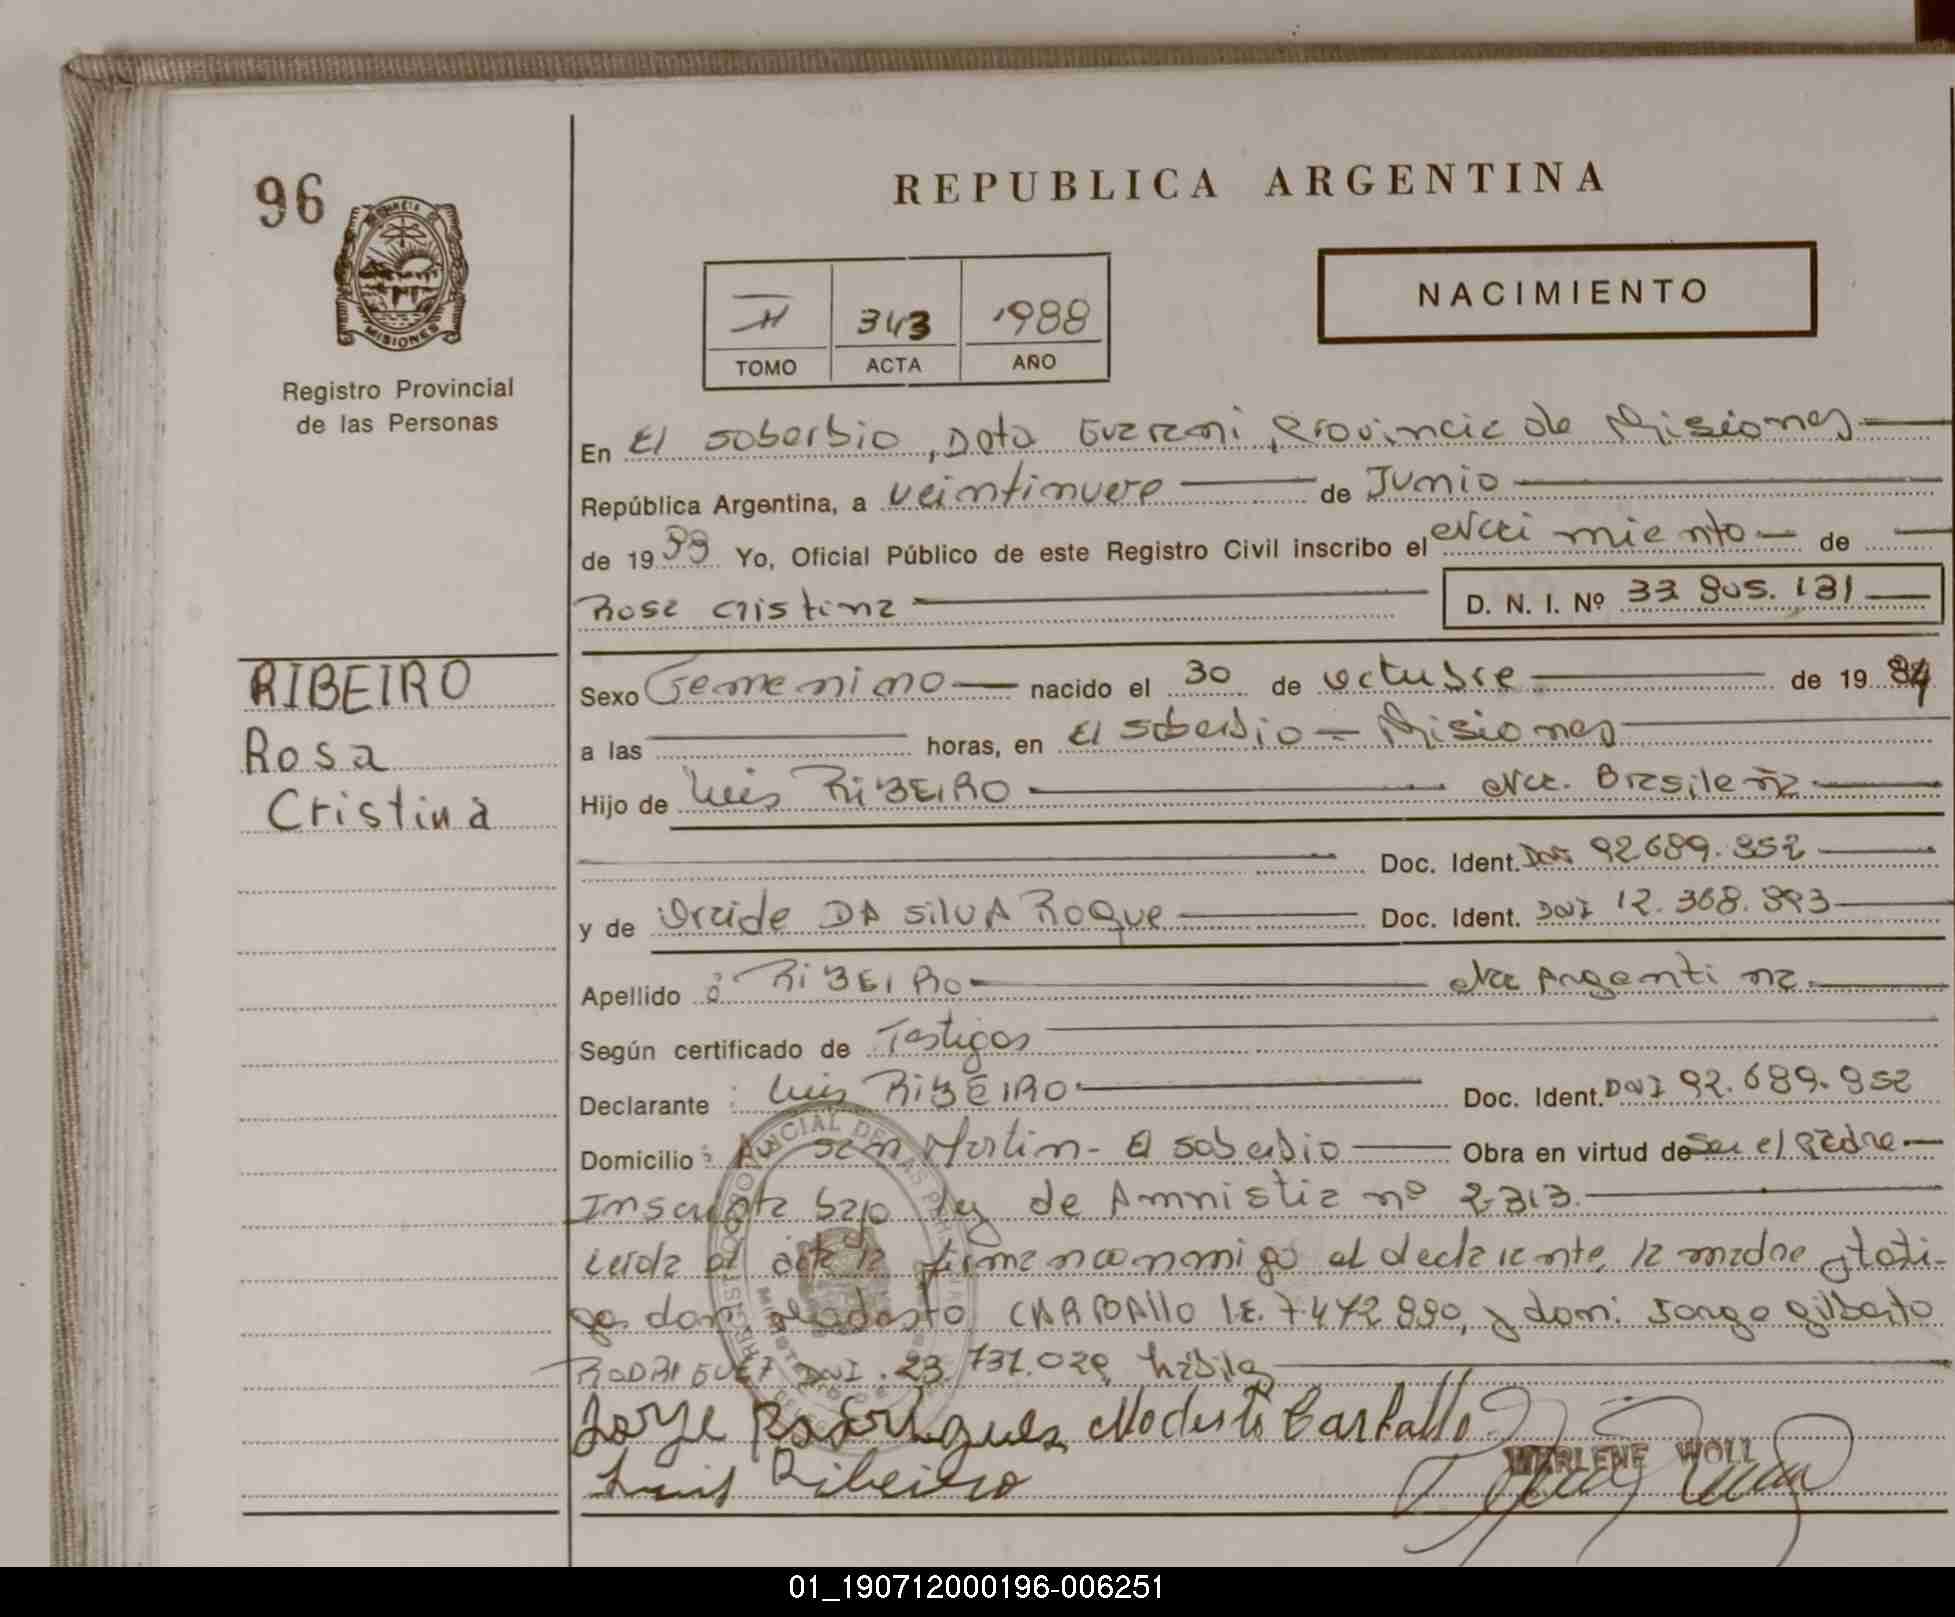 96
REPUBLICA ARGENTINA
NACIMIENTO
MISIONES
Registro Provincial
de las Personas
II 343 1988
TOMO ACTA AÑO
En El soberbio, Dpto Guarani, Provincia de Misiones
República Argentina, a veintinueve de Junio
de 1988 Yo, Oficial Público de este Registro Civil inscribo el Naci miento de
Rosa Cristina D. N. I. Nº 33 805. 131
RIBEIRO
Rosa
Cristina
Sexo Femenino nacido el 30 de octubre de 1984
a las horas, en El Soberbio - Misiones
Hijo de Luis RIBEIRO Nac. Brasileña
Doc. Ident. DNI 92689.952
y de DA SILVA ROQUE Doc. Ident. DNI 12.368.993
Apellido : RIBEIRO Nac Argentina
Según certificado de Testigos
Declarante : Luis RIBEIRO Doc. Ident. DNI 92.689.952
Domicilio : Av San Martin - El soberbio Obra en virtud de Ser el padre
Inscripta bajo ley de Amnistia nº 2313.
Leida el acta la firman conmigo el declarante, la madre y testi-
gos don Modesto CARBALLO L.E. 7.472.990, y don: Jorge Gilberto
RODRIGUEZ DNI. 23.737.029, hábiles
Jorge Rodrigues Modesto Carballo
Luis Ribeiro
MARLENE WOLL
01_190712000196-006251